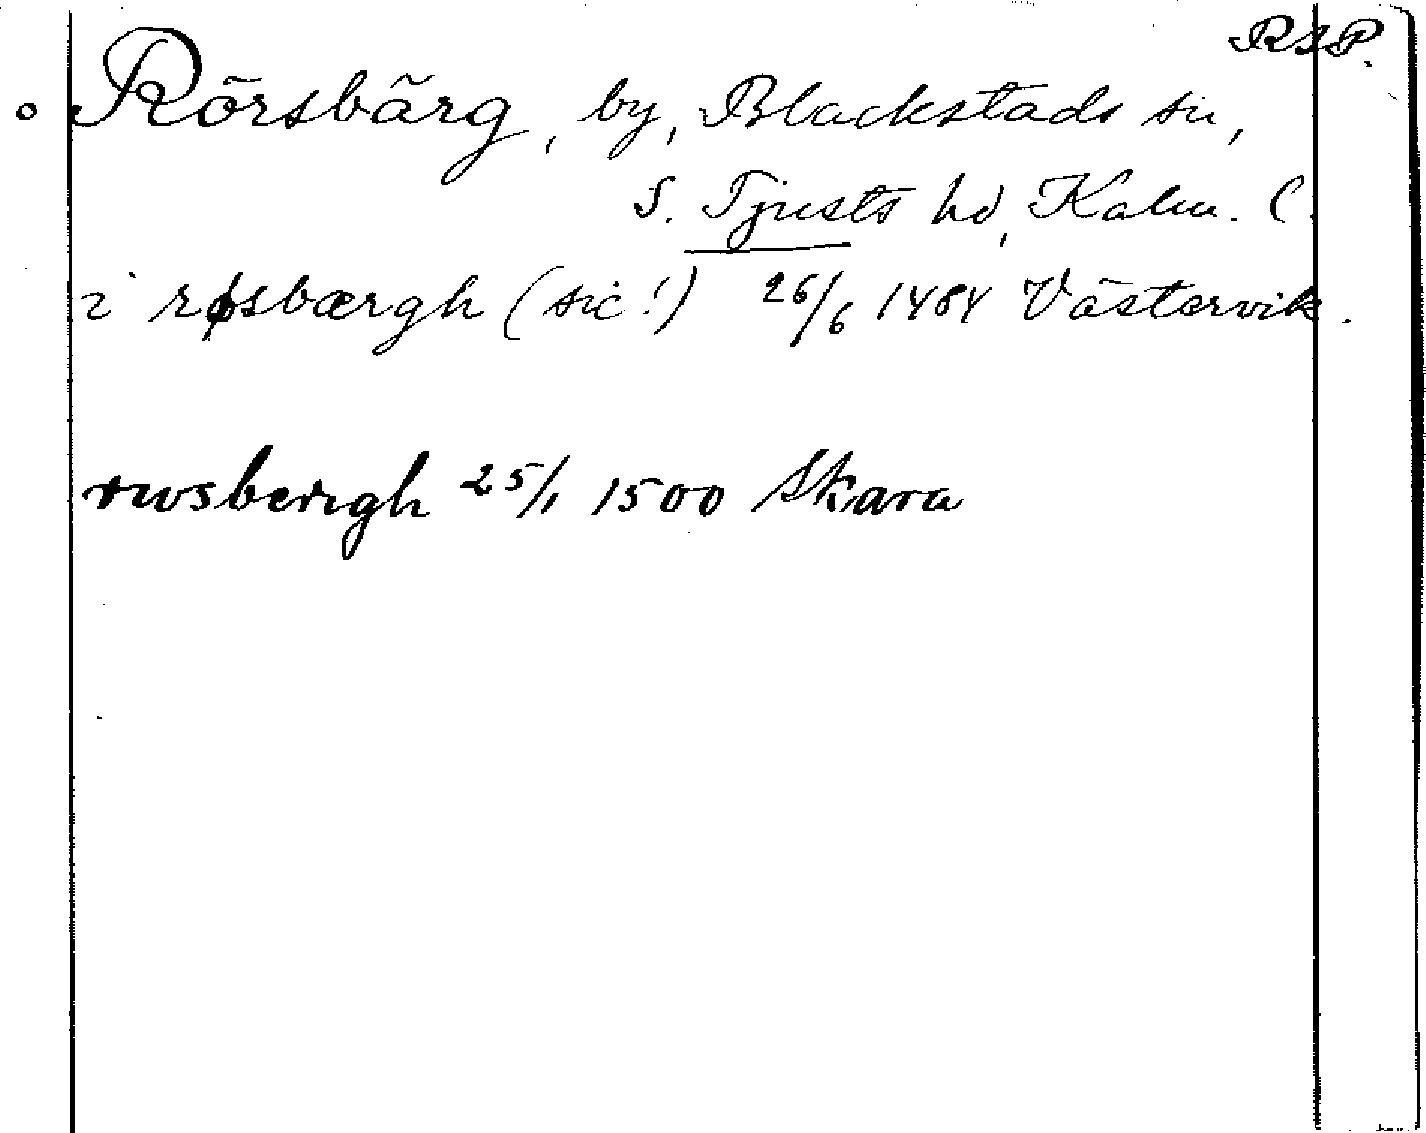 RSP.
o Rörsbärg, by, Blackstads sn,
S. Tjusts hd, Kalm. l.
i røsbærgh (sic!) 26/6 1484 Västervik.
rwsbergh 25/1 1500 Skara